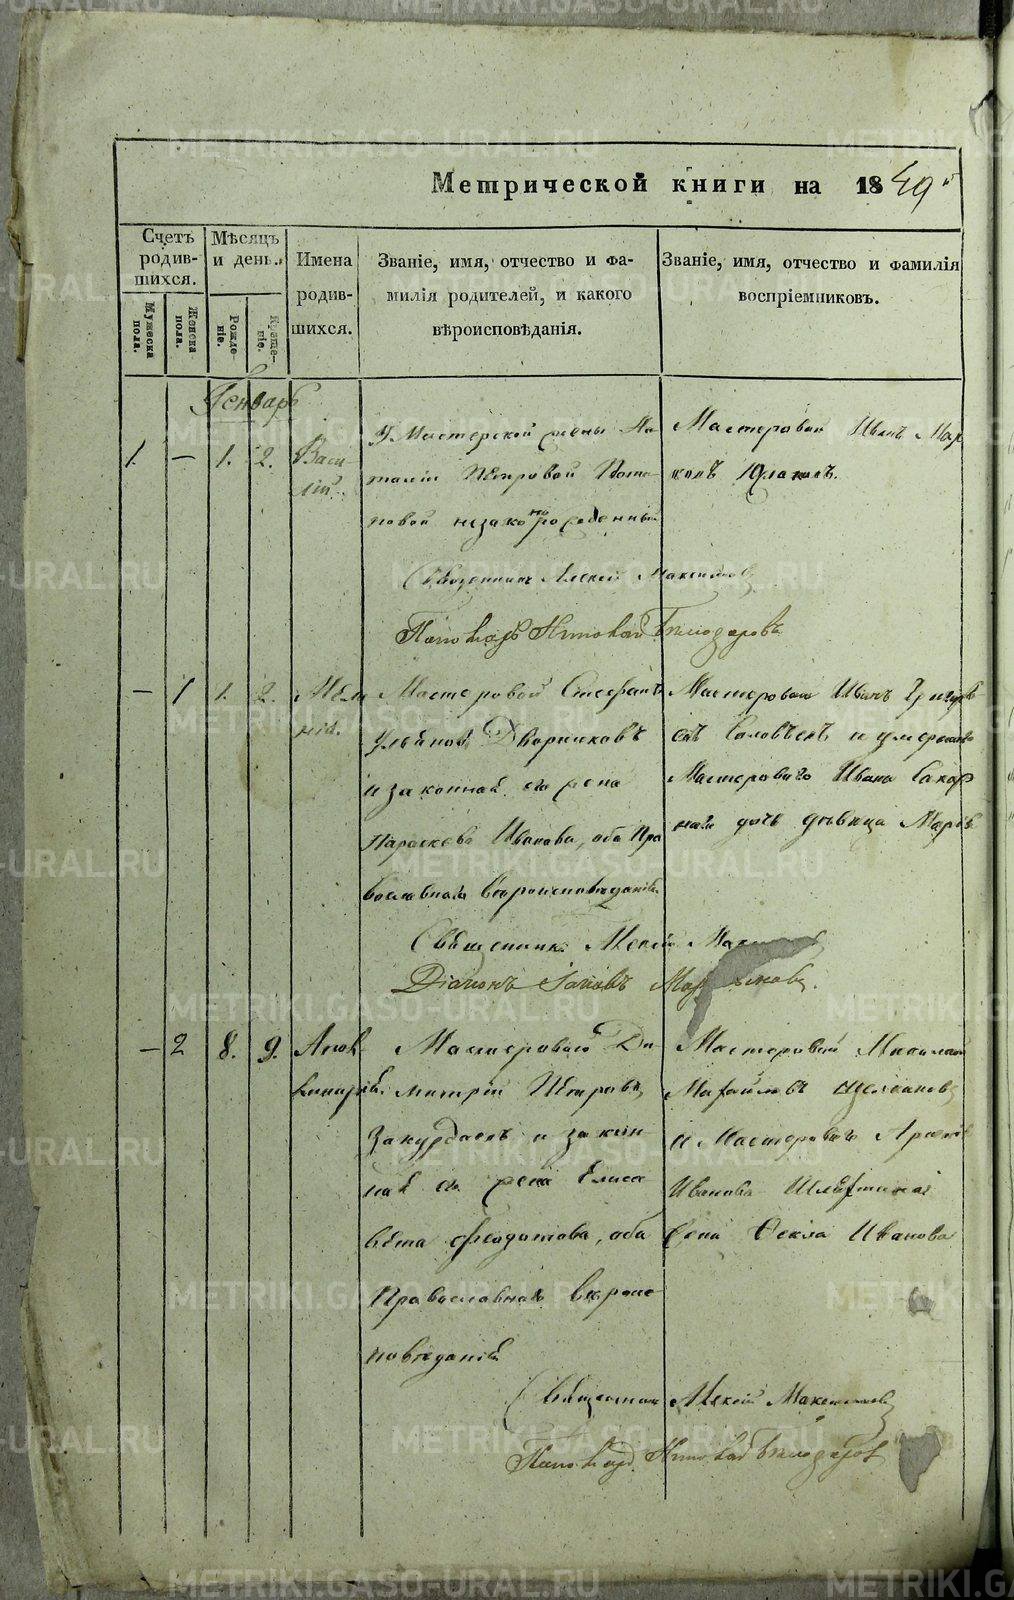 METRIKI.GASO-URAL.RU
Метрической книги на 1849й
Счетъ родив-шихся.
Мужеска пола.
Женска пола.
Мѣсяцъ и день.
Рожде-ніе.
Креще-ніе.
Имена родив-шихся.
Званіе, имя, отчество и фа-
милія родителей, и какого
вѣроисповѣданія.
Званіе, имя, отчество и фамилія
воспріемниковъ.
Генварь
1. — 1. 2. Васи
лій.
У Мастерской жены На
таліи Петровой Пота
повой незаконнорожденный
Мастеровой Иванъ Мар
ковъ
Священникъ Алексій Максимовъ
Пономарь
— 1 1. 2. Мела
нія.
Мастеровой Стефанъ
Ульяновъ Дворниковъ
и законная его жена
Параскева Иванова, оба Пра
вославнаго вѣроисповѣданія.
Мастеровой Иванъ Григорь
евъ Соловьевъ и умершаго
Мастероваго Ивана Сахар
наго дочь дѣвица Марья
Священникъ Алексій
Діаконъ Іаковъ
— 2 8. 9. Апол
линарія.
Мастероваго Ди
митрій Петровъ
и закон
ная его жена Елиса
вета Феодотова, оба
Православнаго вѣроис
повѣданія
Мастеровой Николай
Михайловъ
и Мастероваго
Иванова
жена Ѳекла Иванова
Священникъ Алексій Максимовъ
Пономарь